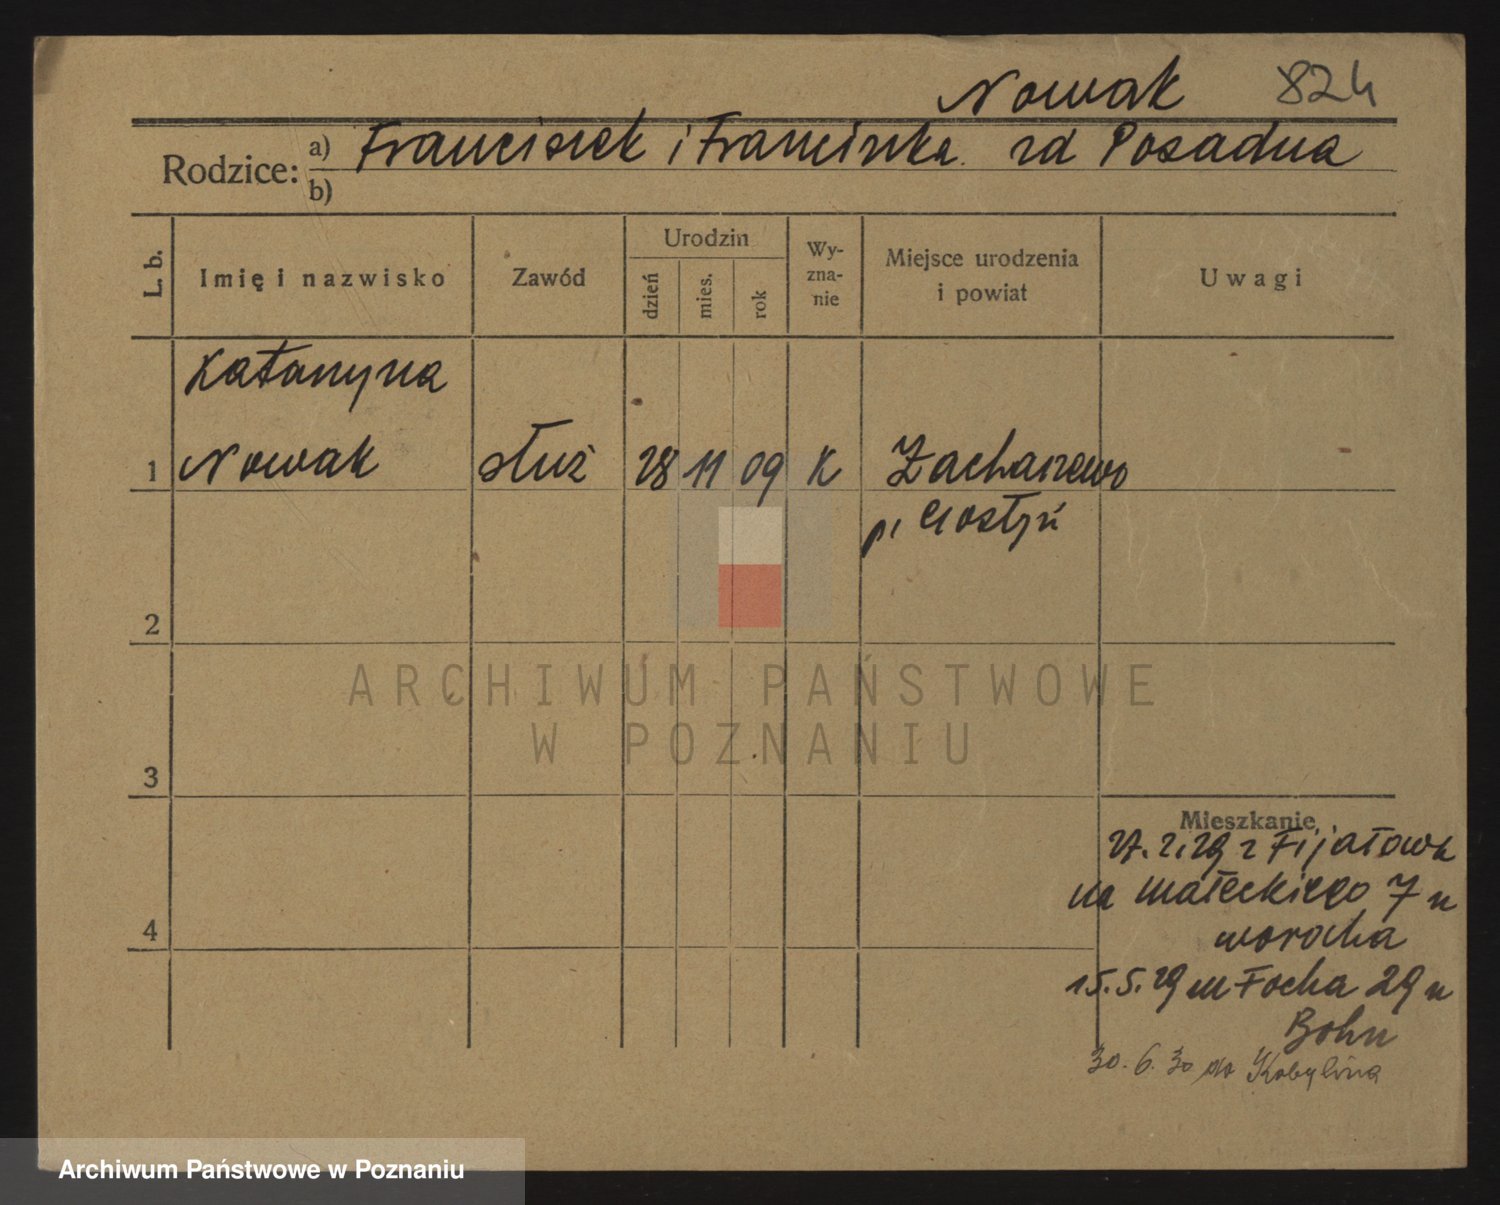 Nowak 824
Rodzice: a) Franciszek i Franciszka zd Posadna
b)
L. b. Imię i nazwisko Zawód Urodzin dzień mies. rok Wy-zna-nie Miejsce urodzenia i powiat Uwagi
Katarzyna
1 Nowak służ 28 11 09 K Zacharzewo
p. Gostyń
2
ARCHIWUM PAŃSTWOWE
W POZNANIU
3
Mieszkanie
27. 2. 29 z Fijałowa
na Małeckiego 7 u
4
15. 5. 29 na Focha 29 u
Bohn
30. 6. 30 do Kobylina
Archiwum Państwowe w Poznaniu